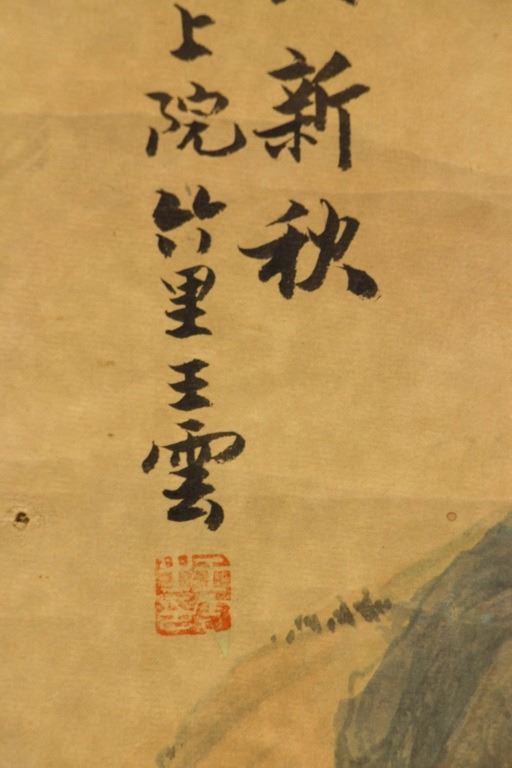 新秋
上院竹里王雲